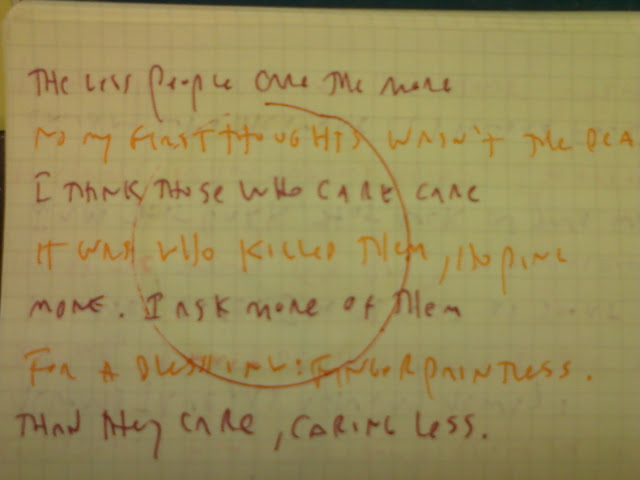 THE LESS PEOPLE CARE THE MORE
NO MY FIRST THOUGHTS WASN'T THE DEA
I THINK THOSE WHO CARE CARE
IT WAS WHO KILLED THEM, HOPING
MORE. I ASK MORE OF THEM
FOR A BLESSING: FINGERPRINTLESS.
THAN THEY CARE, CARING LESS.